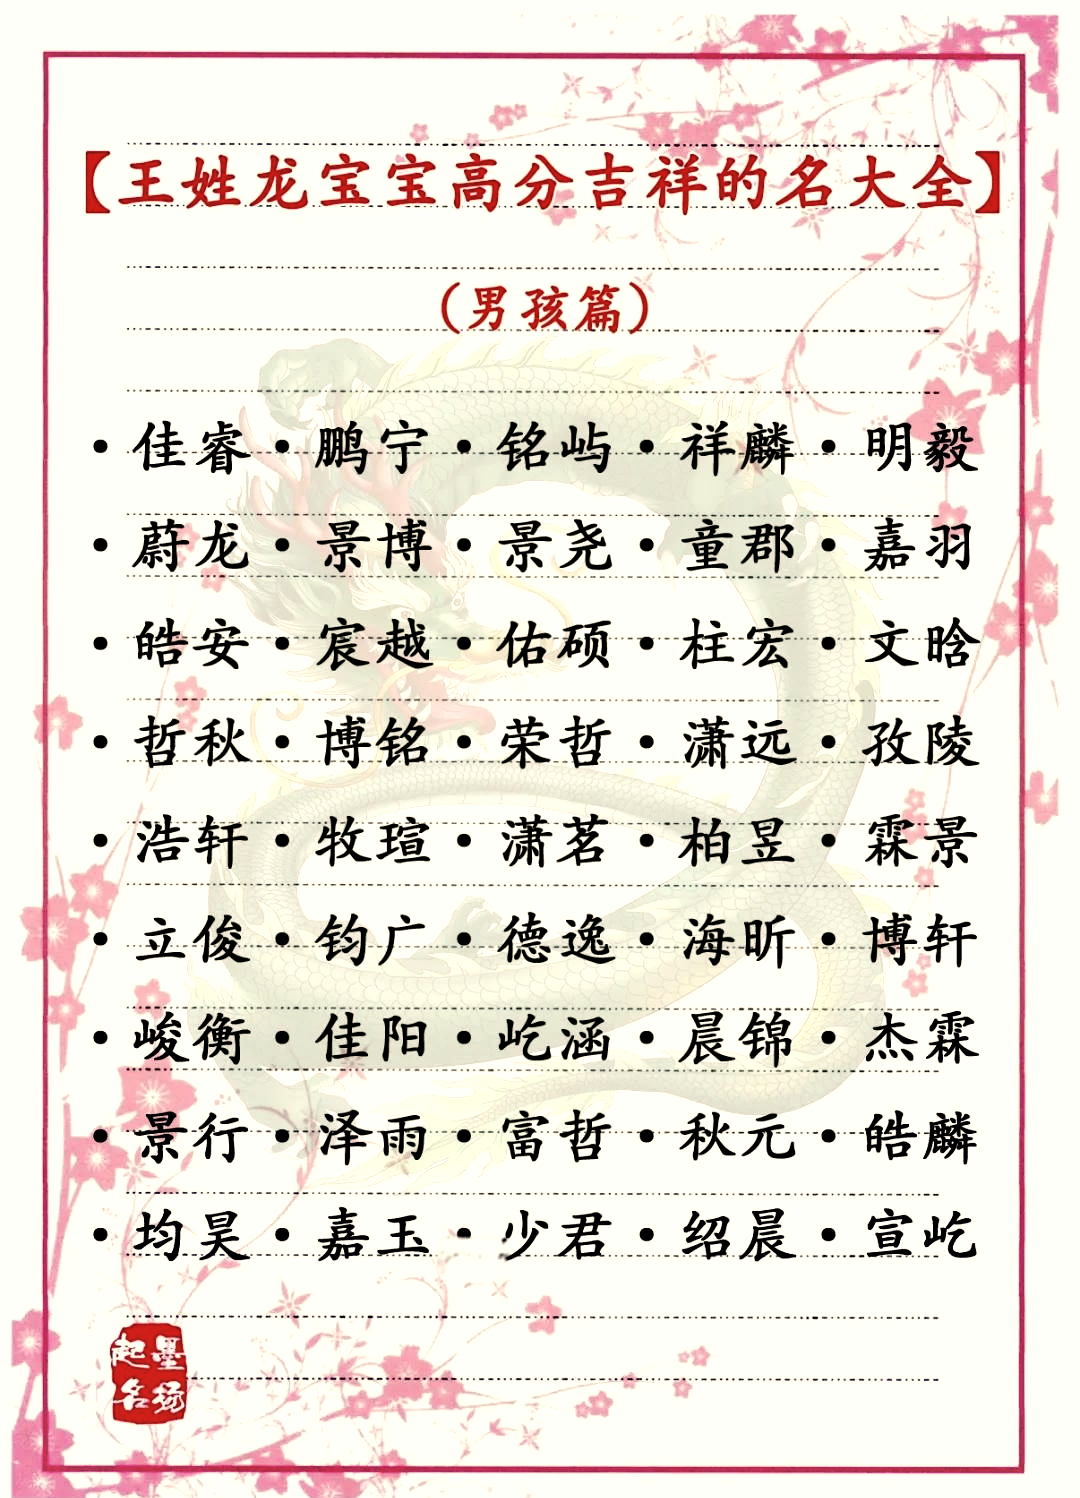 【王姓龙宝宝高分吉祥的名大全】
（男孩篇）
·佳睿·鹏宁·铭屿·祥麟·明毅
·蔚龙·景博·景尧·童郡·嘉羽
·皓安·宸越·佑硕·柱宏·文晗
·哲秋·博铭·荣哲·潇远·孜陵
·浩轩·牧瑄·潇茗·柏昱·霖景
·立俊·钧广·德逸·海昕·博轩
·峻衡·佳阳·屹涵·晨锦·杰霖
·景行·泽雨·富哲·秋元·皓麟
·均昊·嘉玉·少君·绍晨·宣屹
墨扬
起名